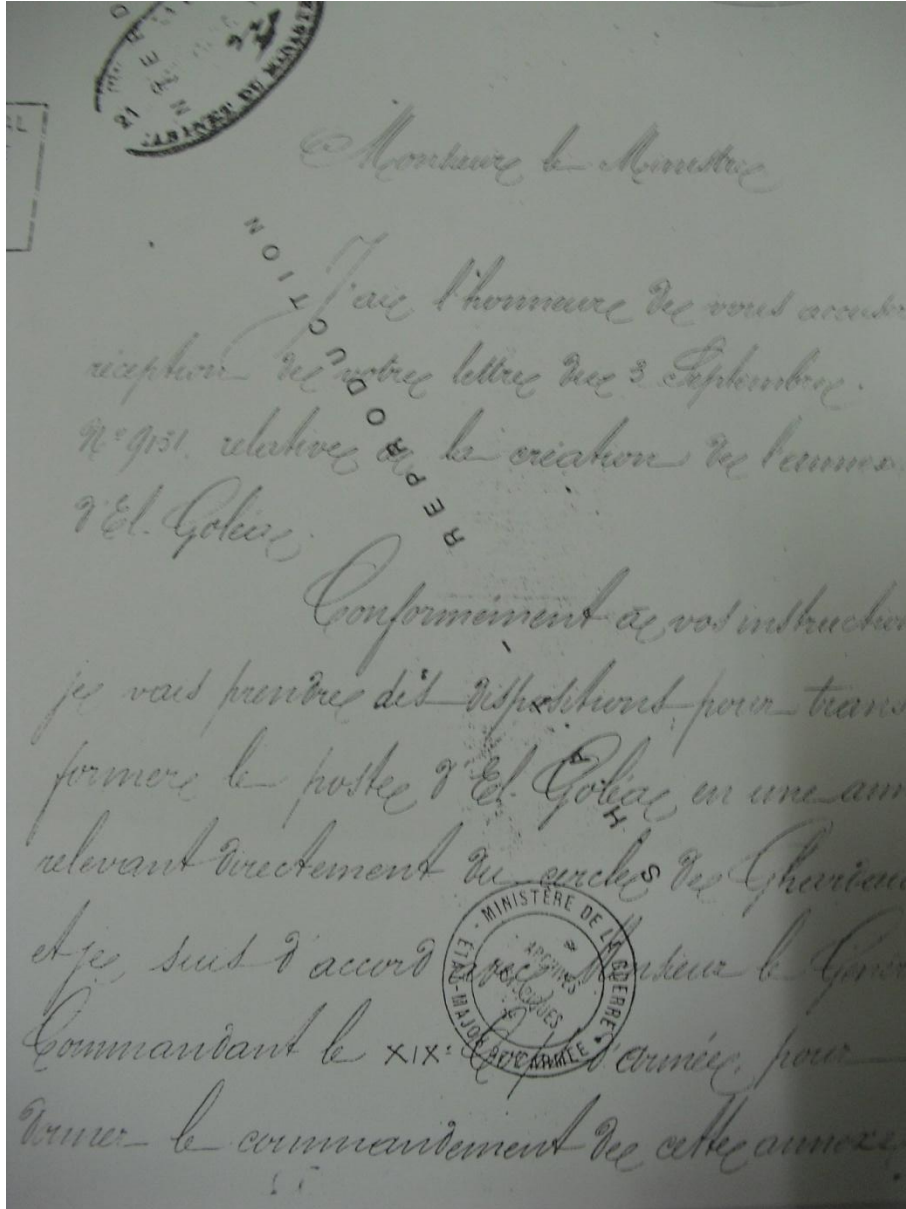 CABINET DU MINISTRE
Monsieur le Ministre
J'ai l'honneur de vous accuser
réception de votre lettre du 3 Septembre.
N° 9131. relative à la création de l'annex
d'El-Goléa.
REPRODUCTION
Conformément à vos instruction
je vais prendre des dispositions pour trans
former le poste d'El-Goléa en une ann
relevant directement du cercle de Ghardaia
et je suis d'accord avec Monsieur le Génér
Commandant le XIXe Corps d'armée, pour
donner le commandement de cette annexe
S. H. A.
MINISTÈRE DE LA GUERRE
ÉTAT-MAJOR DE L'ARMÉE
ARCHIVES